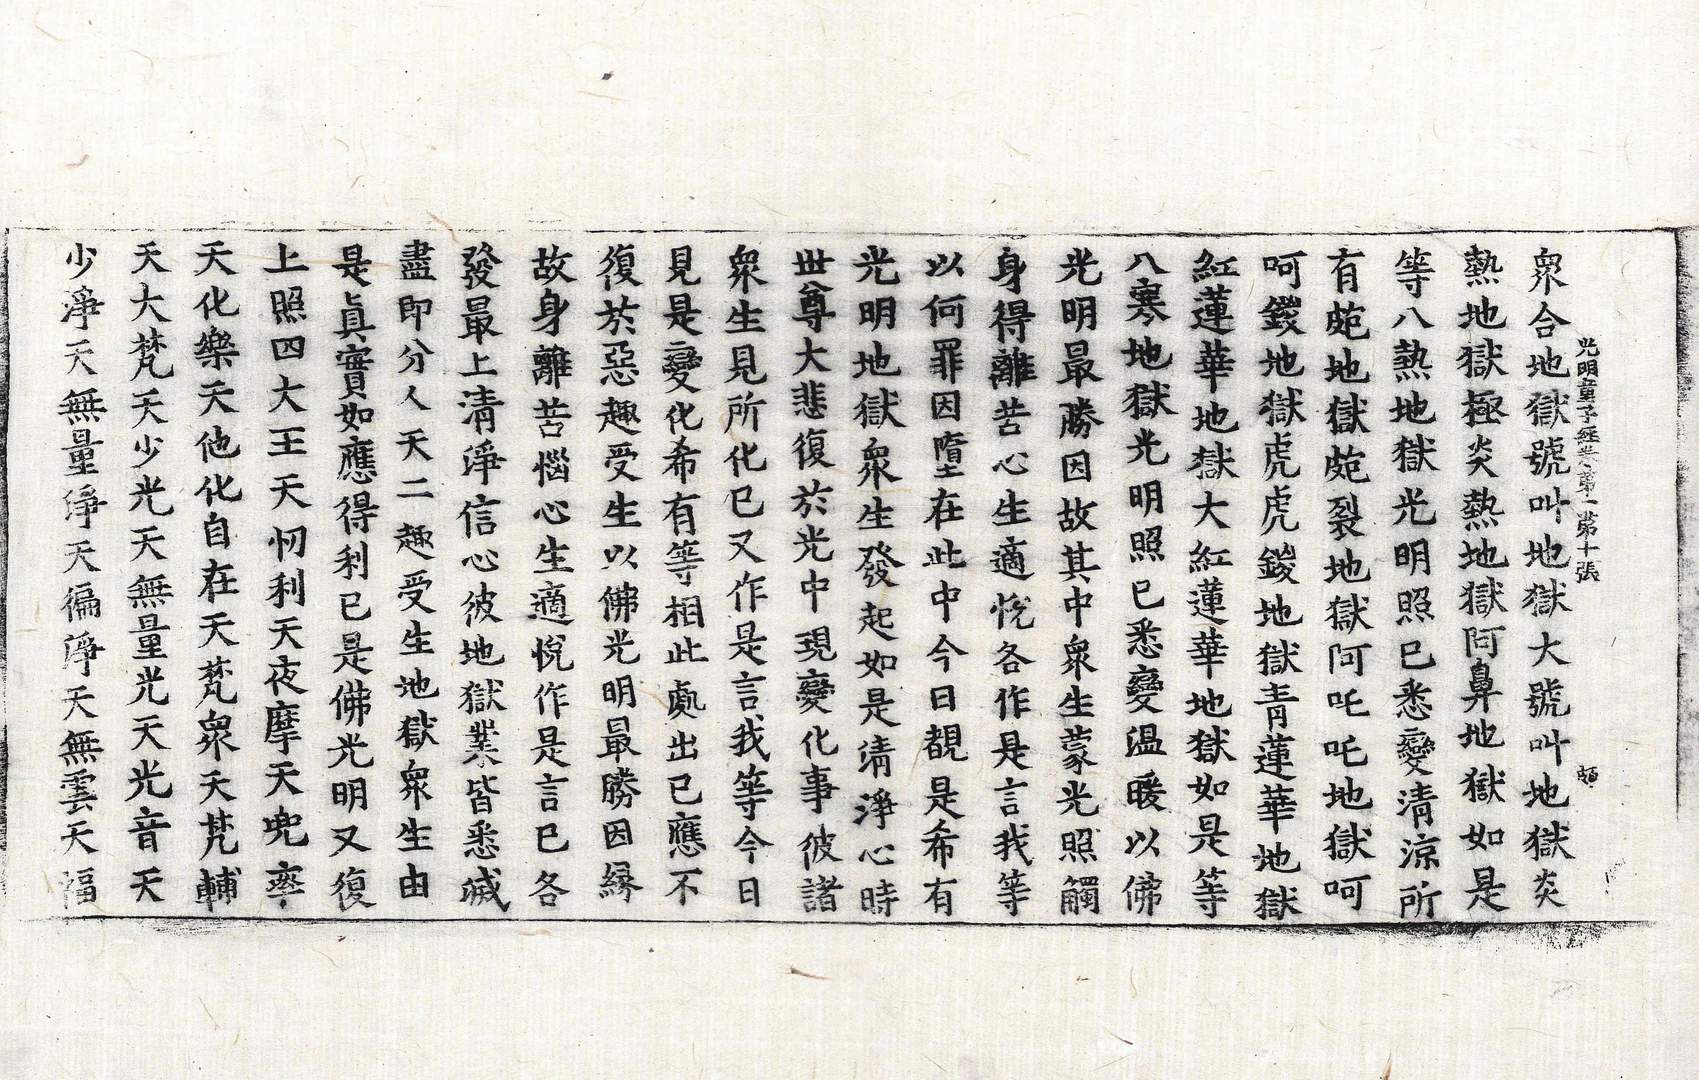 光明童子經卷第一第十張 頗
衆合地獄號叫地獄大號叫地獄炎
熱地獄極炎熱地獄阿鼻地獄如是
等八熱地獄光明照已悉變清涼所
有皰地獄皰裂地獄阿吒吒地獄呵
呵鑁地獄虎虎鑁地獄青蓮華地獄
紅蓮華地獄大紅蓮華地獄如是等
八寒地獄光明照已悉變溫暖以佛
光明最勝因故其中衆生蒙光照觸
身得離苦心生適悅各作是言我等
以何罪因墮在此中今日覩是希有
光明地獄衆生發起如是清淨心時
世尊大悲復於光中現變化事彼諸
衆生見所化已又作是言我等今日
見是變化希有等相此處出已應不
復於惡趣受生以佛光明最勝因緣
故身離苦惱心生適悅作是言已各
發最上清淨信心彼地獄業皆悉滅
盡即分人天二趣受生地獄衆生由
是眞實如應得利已是佛光明又復
上照四大王天忉利天夜摩天兜率
天化樂天他化自在天梵衆天梵輔
天大梵天少光天無量光天光音天
少淨天無量淨天徧淨天無雲天福